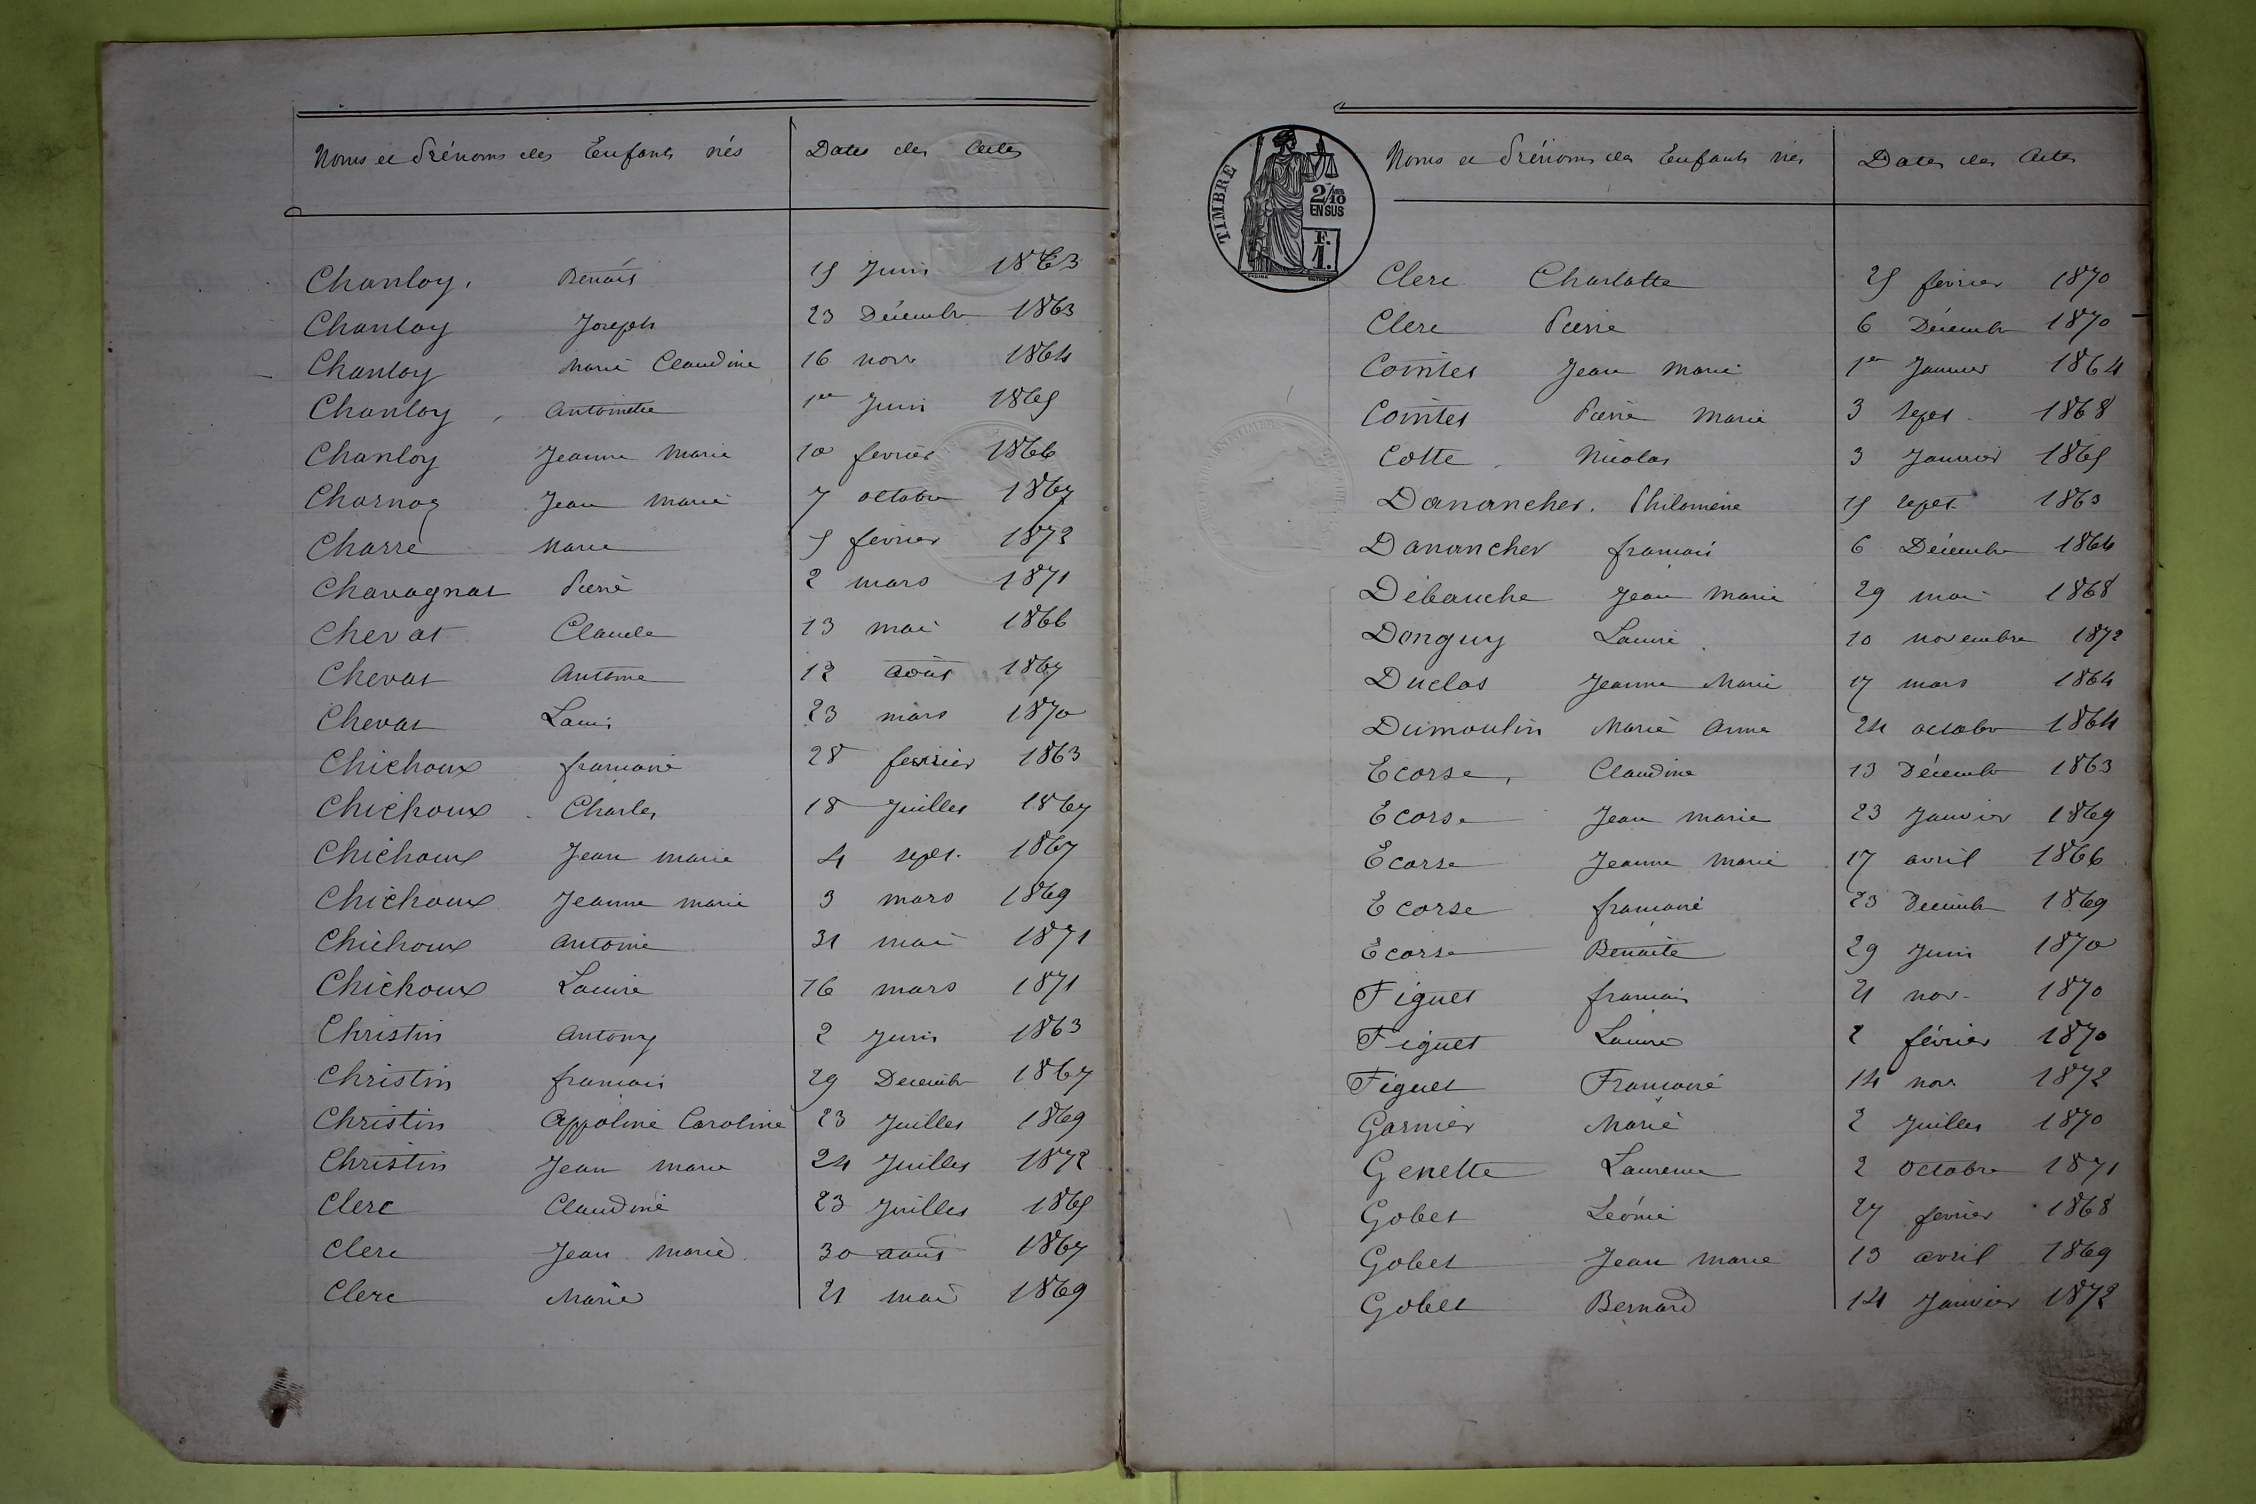 Noms et Prénoms des Enfants nés Dates des Actes
Chanloy. Benoit 15 Juin 1863
Chanloy Joseph 23 Décembre 1863
Chanloy Marie Claudine 16 novr 1864
Chanloy, Antoinette 1er Juin 1865
Chanloy Jeanne Marie 10 fevrier 1866
Charnay Jean Marie 7 octobre 1867
Charre Marie 5 février 1873
Chavagnat Pierre 2 mars 1871
Chevat Claude 13 mai 1866
Chevat Antoine 12 août 1867
Chevat Louis 23 mars 1870
Chichoux francoise 28 fevrier 1863
Chichoux Charles 18 Juillet 1867
Chichoux Jean marie 4 sept. 1867
Chichoux Jeanne marie 3 mars 1869
Chichoux Antoine 31 mai 1871
Chichoux Louise 16 mars 1871
Christin Antony 2 Juin 1863
Christin francois 29 Decembre 1867
Christin Appoline Caroline 23 Juillet 1869
Christin Jean marie 24 Juillet 1872
Clerc Claudine 23 Juillet 1865
Clerc Jean marie 30 août 1867
Clerc Marie 21 mai 1869
TIMBRE
2/10
EN SUS
F.
1.
Noms et Prénoms des Enfants nés Dates des Actes
Clerc Charlotte 25 février 1870
Clerc Pierre 6 Décembre 1870
Cointet Jean Marie 1er Janvier 1864
Cointet Pierre Marie 3 sept. 1868
Cotte Nicolas 3 Janvier 1865
Danancher. Philomène 15 sept. 1863
Danancher francois 6 Décembre 1864
Débauche Jean Marie 29 mai 1868
Donguy Louise 10 novembre 1872
Duclos Jeanne Marie 17 mars 1864
Dumoulin Marie Anne 24 octobre 1864
Ecorse, Claudine 13 Décembre 1863
Ecorse Jean marie 23 Janvier 1869
Ecorse Jeanne Marie 17 avril 1866
Ecorse francoise 23 Decembre 1869
Ecorse Benoite 29 Juin 1870
Figuet francois 21 nov. 1870
Figuet Louise 2 février 1870
Figuet Francoise 14 nov. 1872
Garnier Marie 2 Juillet 1870
Genette Laurence 2 Octobre 1871
Gobet Léonie 27 fevrier 1868
Gobet Jean Marie 13 avril 1869
Gobet Bernard 14 Janvier 1872